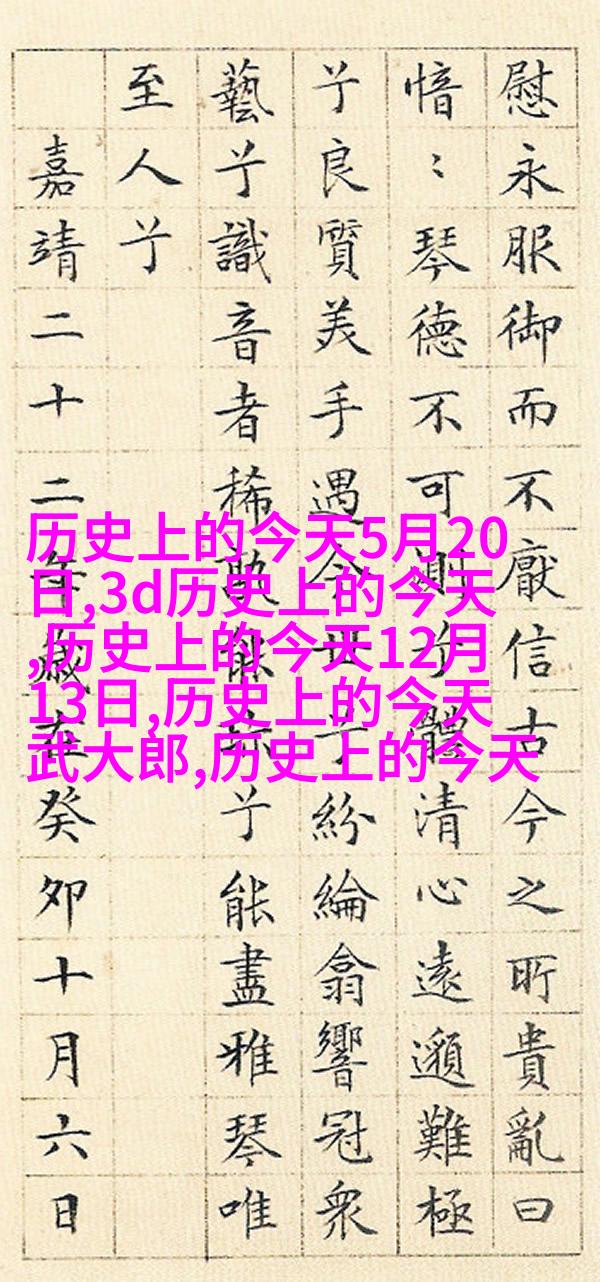 慰永服御而不厭信古今之所貴亂曰
愔〻琴德不可測兮體清心遠邈難極
兮良質美手遇今世兮紛綸翕響冠衆
藝兮識音者稀孰能珎兮能盡雅琴唯
至人兮
嘉靖二十二年歲在癸卯十月六日
历史上的今天5月20
日,3d历史上的今天
,历史上的今天12月
13日,历史上的今天
武大郎,历史上的今天